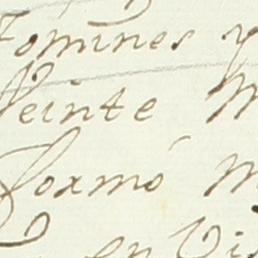 Tomines y
Veinte M
Foxmó M
en Vi